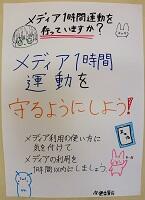 メディア1時間運動を
行っていますか?
メディア1時間
運動を
守るようにしよう!
メディア利用の使い方に
気を付けて
メディアの利用を
1時間以内にしましょう。